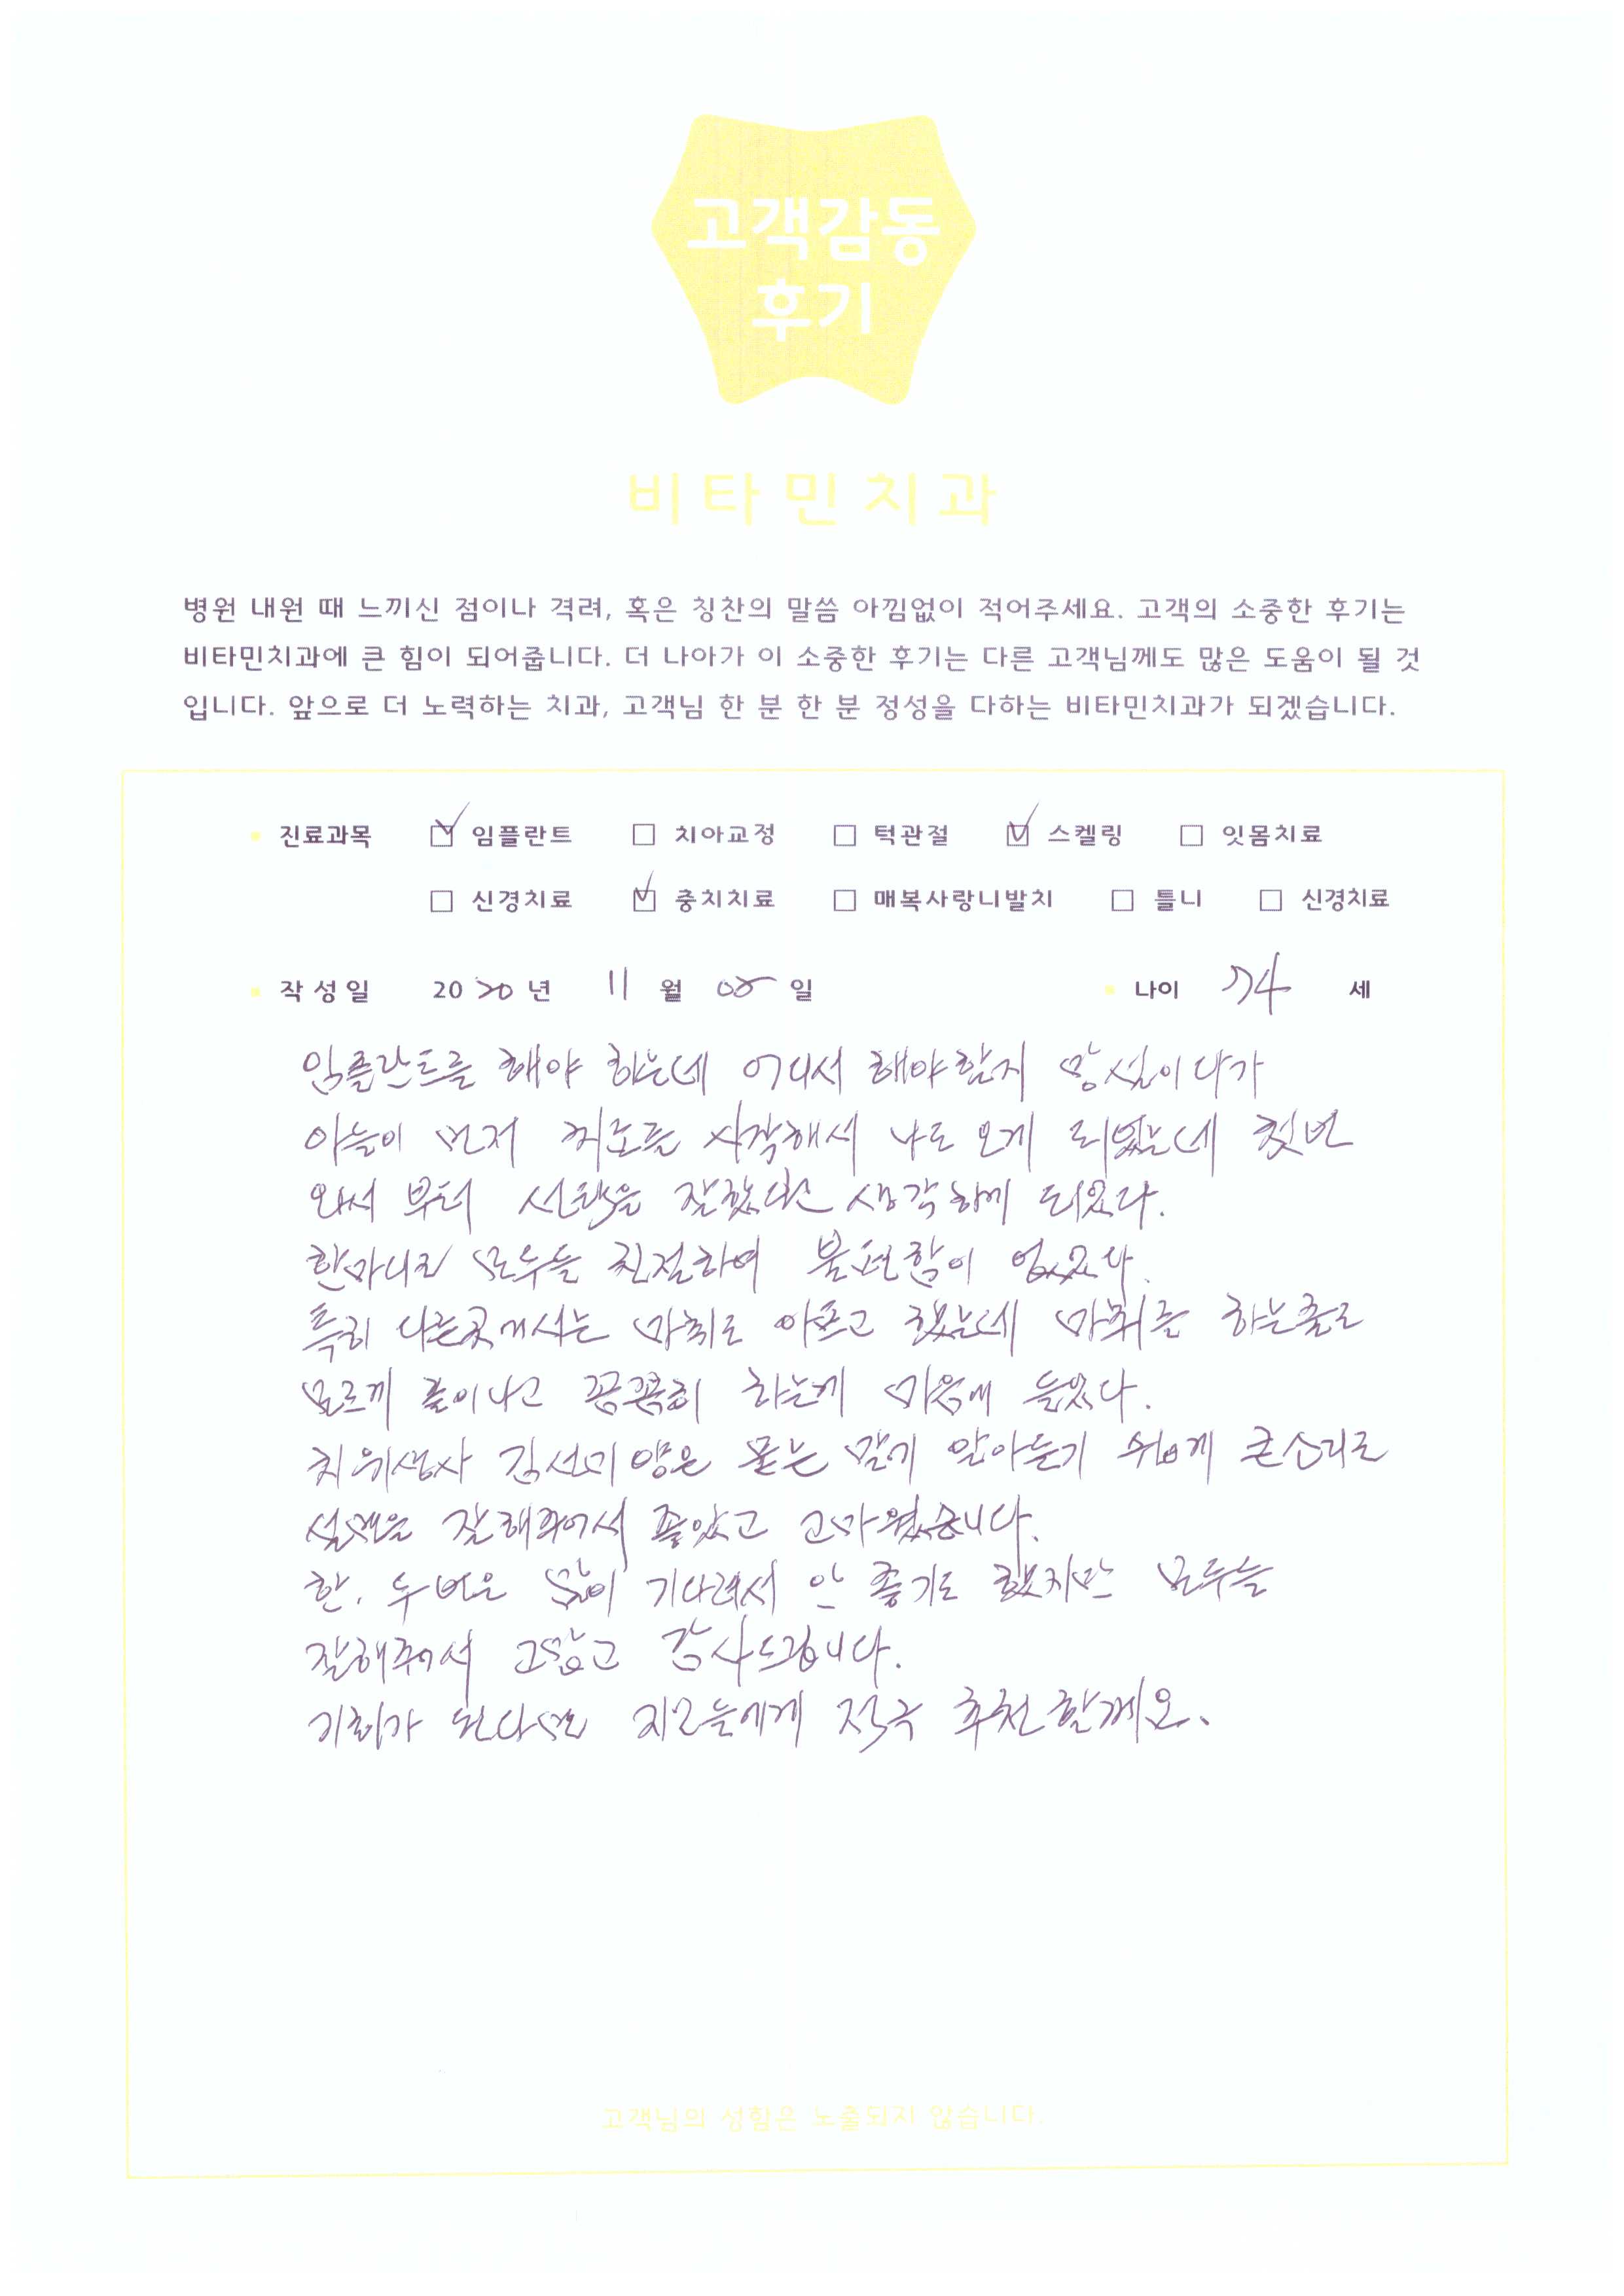 고객감동
후기
비타민치과
병원 내원 때 느끼신 점이나 격려, 혹은 칭찬의 말씀 아낌없이 적어주세요. 고객의 소중한 후기는
비타민치과에 큰 힘이 되어줍니다. 더 나아가 이 소중한 후기는 다른 고객님께도 많은 도움이 될 것
입니다. 앞으로 더 노력하는 치과, 고객님 한 분 한 분 정성을 다하는 비타민치과가 되겠습니다.
진료과목 임플란트 치아교정 턱관절 스켈링 잇몸치료
신경치료 충치치료 매복사랑니발치 틀니 신경치료
작성일 2020년 11월 05일 나이 74 세
임플란트를 해야 하는데 어디서 해야할지 망설이다가
아들이 먼저 치료를 시작해서 나도 오게 되었는데 첫번
와서 부터 선택을 잘했단 생각하게 되었다.
한마디로 모두들 친절하여 불편함이 없었다.
특히 다른곳에서는 마취도 아프고 했는데 마취를 하는줄도
모르게 끝이나고 꼼꼼히 하는게 마음에 들었다.
치위생사 김선미양은 묻는 말에 알아듣기 쉽게 큰소리로
설명을 잘해주어서 좋았고 고마웠습니다.
한, 두번은 많이 기다려서 안 좋기도 했지만 모두들
잘해주어서 고맙고 감사드립니다.
기회가 된다면 지인들에게 적극 추천할께요.
고객님의 성함은 노출되지 않습니다.